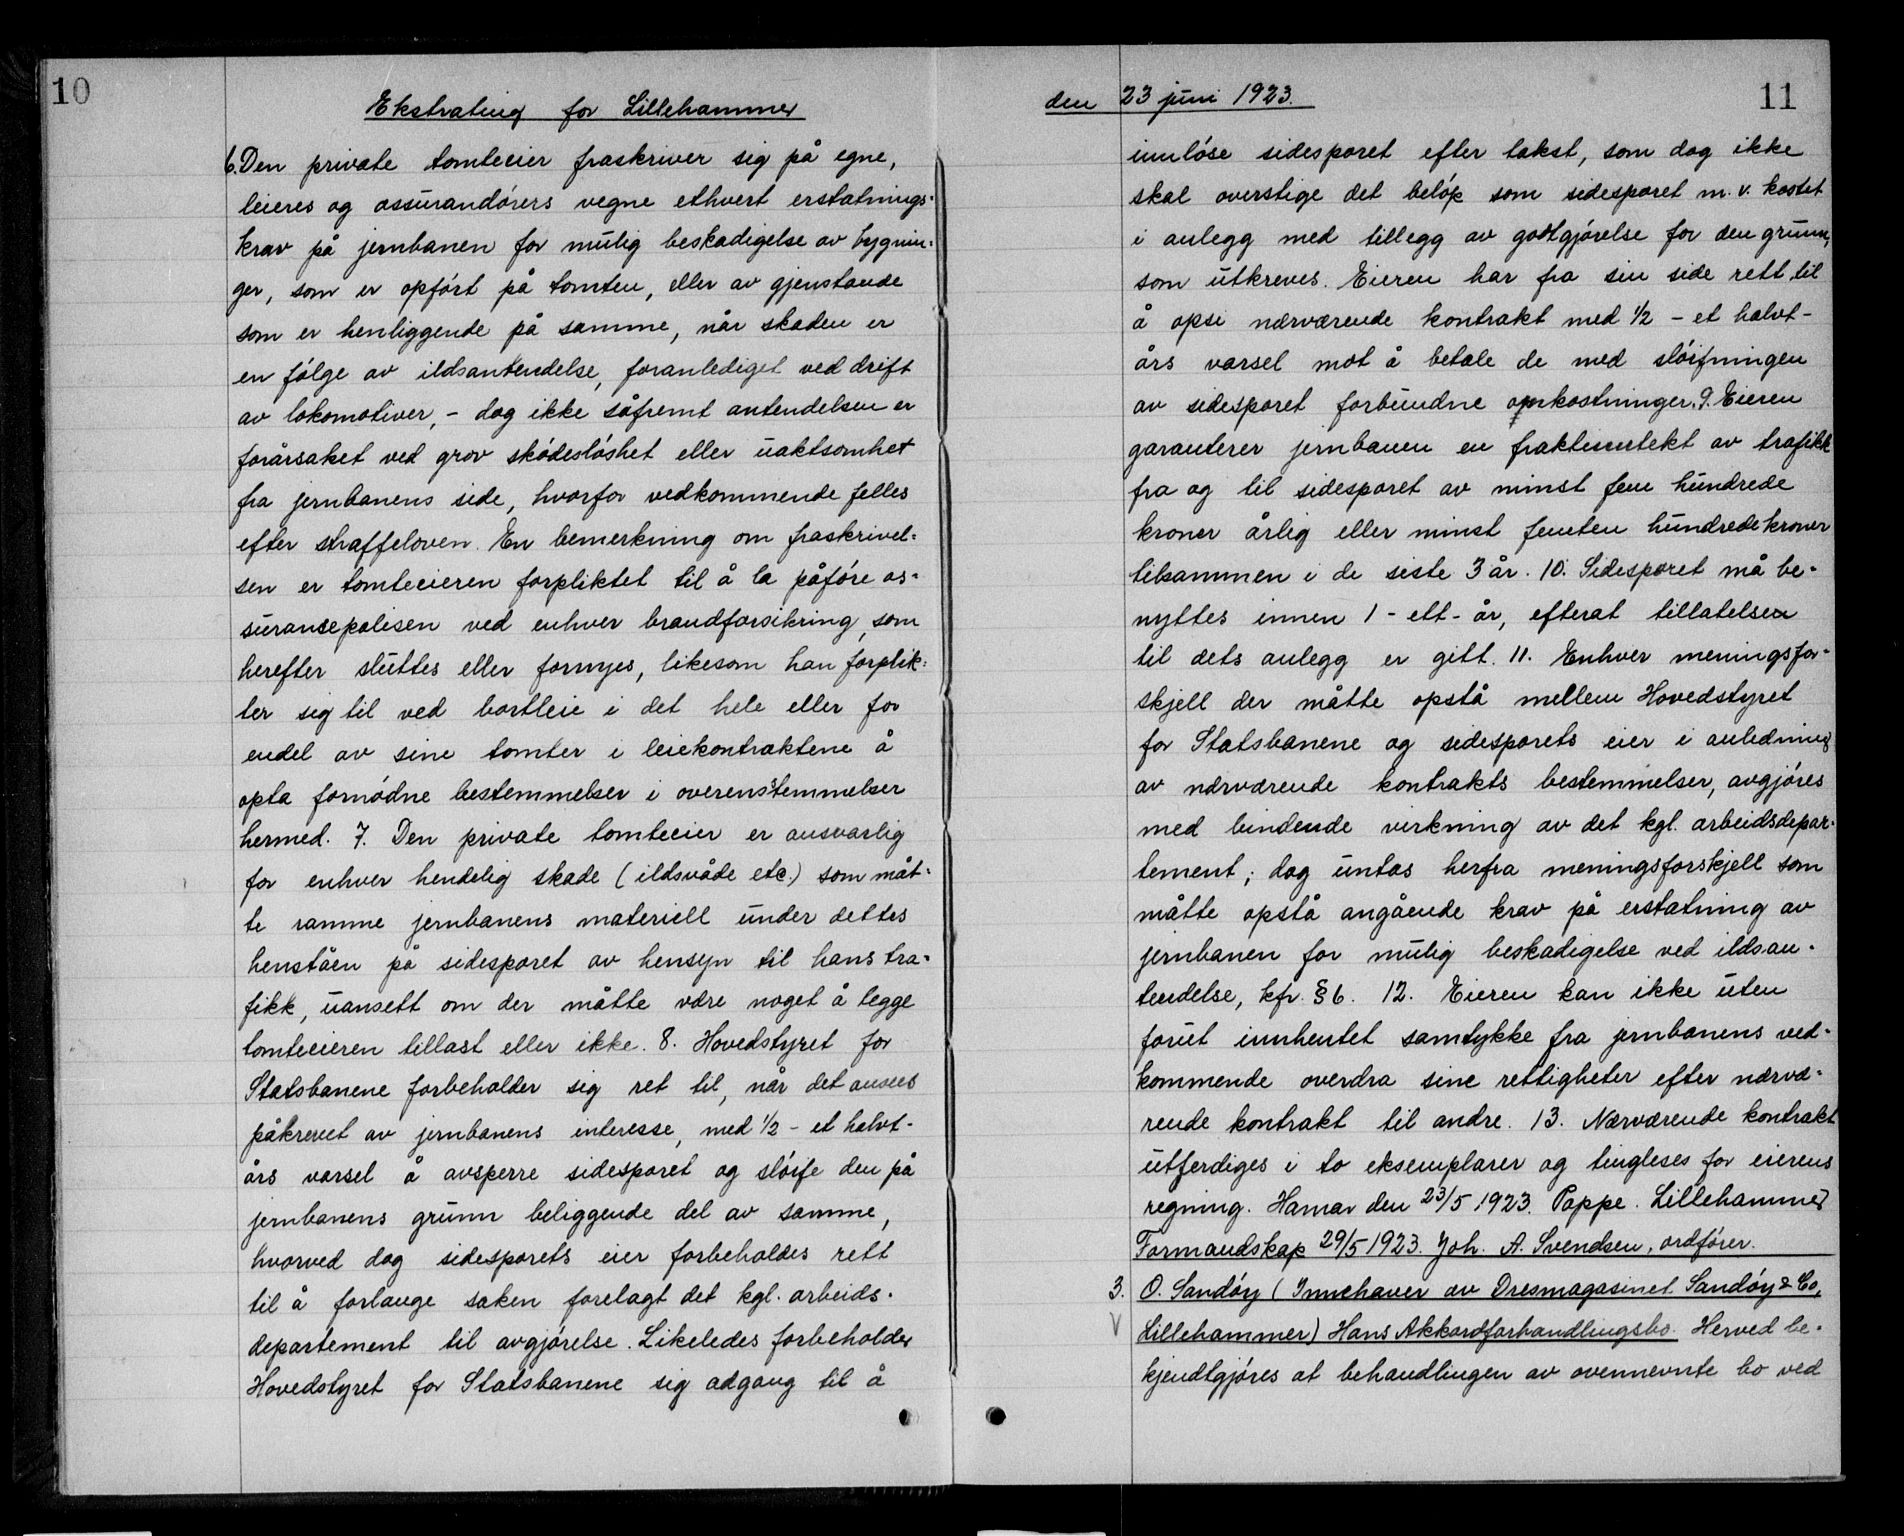 10
Ekstrating for Lillehammer
6. Den private tomteeier fraskriver sig på egne,
leieres og assurandørers vegne ethvert erstatnings-
krav på jernbanen for mulig beskadigelse av bygnin-
ger, som er opført på tomten, eller av gjenstande
som er henliggende på samme, når skaden er
en følge av ildsantendelse, foranlediget ved drift
av lokomotiver, - dog ikke såfremt antendelsen er
forårsaket ved grov skjødesløshet eller uaktsomhet
fra jernbanens side, hvorfor vedkommende felles
efter straffeloven. En bemerkning om fraskrivel-
sen er tomteeieren forpliktet til å la påføre as-
surancepolisen ved enhver brandforsikring, som
herefter sluttes eller fornyes, likesom han forplik-
ter sig til ved bortleie i det hele eller for
endel av sine tomter i leiekontraktene å
opta fornødne bestemmelser i overenstemmelser
hermed. 7. Den private tomteeier er ansvarlig
for enhver hendelig skade (ildsvåde etc.) som måt-
te ramme jernbanens materiell under dettes
henståen på sidesporet av hensyn til hans tra-
fikk, uansett om der måtte være noget å legge
tomteeieren tillast eller ikke. 8. Hovedstyret for
Statsbanene forbeholder sig ret til, når det ansees
påkrevet av jernbanens interesse, med ½ - et halvt-
års varsel å avsperre sidesporet og sløife den på
jernbanens grunn beliggende del av samme,
hvorved dog sidesporets eier forbeholdes rett
til å forlange saken forelagt det kgl. arbeids-
departement til avgjørelse. Likeledes forbeholder
Hovedstyret for Statsbanene sig adgang til å
den 23 juni 1923.
11
innløse sidesporet efter takst, som dog ikke
skal overstige det beløp som sidesporet m. v. kostet
i anlegg med tillegg av godtgjørelse for den grunn,
som utkreves. Eieren har fra sin side rett til
å opsi nærværende kontrakt med ½ - et halvt-
års varsel mot å betale de med sløifningen
av sidesporet forbundne omkostninger. 9. Eieren
garanterer jernbanen en fraktinntekt av trafikk
fra og til sidesporet av minst fem hundrede
kroner årlig eller minst femten hundrede kroner
tilsammen i de siste 3 år. 10. Sidesporet må be-
nyttes innen 1 - ett - år, efterat tillatelsen
til dets anlegg er gitt. 11. Enhver meningsfor-
skjell der måtte opstå mellem Hovedstyret
for Statsbanene og sidesporets eier i anledning
av nærværende kontrakts bestemmelser, avgjøres
med bindende virkning av det kgl. arbeidsdepar-
tement; dog untas herfra meningsforskjell som
måtte opstå angående krav på erstatning av
jernbanen for mulig beskadigelse ved ildsan-
tendelse, kfr. § 6. 12. Eieren kan ikke uten
forut innhentet samtykke fra jernbanens ved-
kommende overdra sine rettigheter efter nærvæ-
rende kontrakt til andre. 13. Nærværende kontrakt
utferdiges i to eksemplarer og tingleses for eierens
regning. Hamar den 23/5 1923. Poppe. Lillehammer
Formandskap 29/5 1923. Joh. A. Svendsen, ordfører.
3. O. Sandøy (Innehaver av Dresmagasinet Sandøy & Co,
Lillehammer) Hans Akkordforhandlingsbo. Herved be-
kjendtgjøres at behandlingen av ovennevnte bo ved